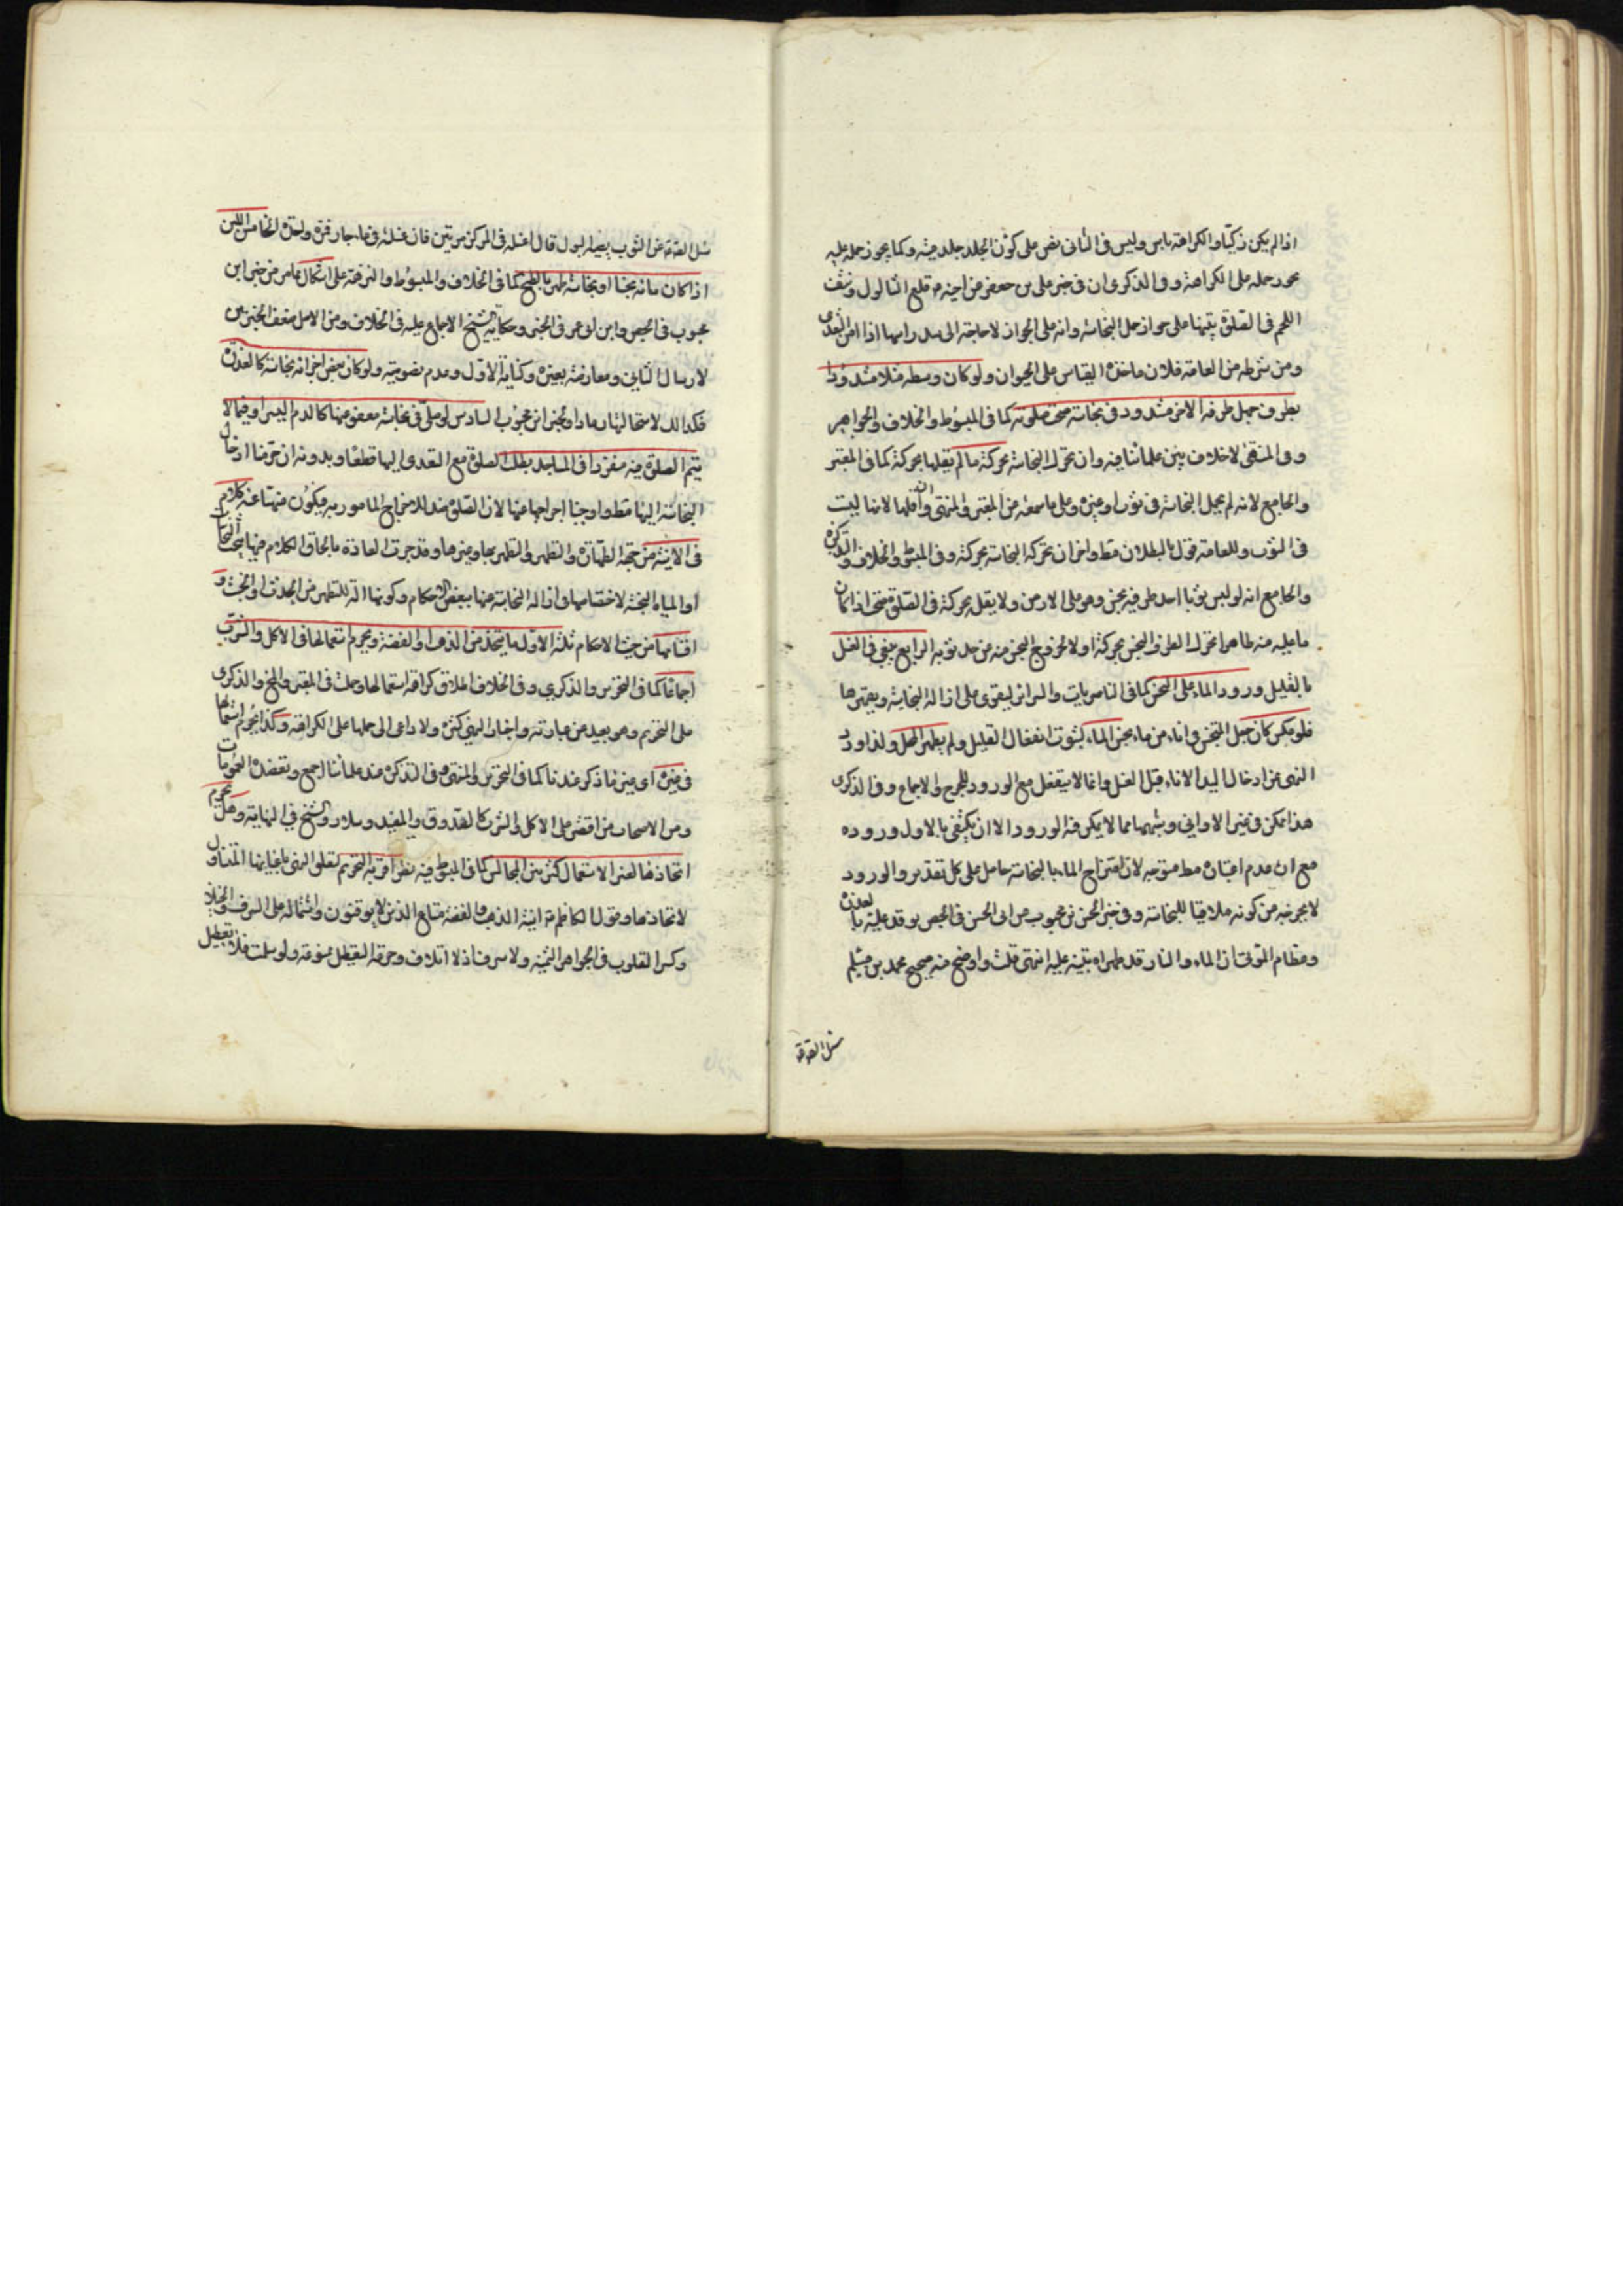 اذا لم يكن ذكيا والكراهة باس وليس في الثاني نص على كون الجلد جلد ميتة وكما يجوز حمله عليه
يجوز حمله على الكراهة وفي الذكرى ان في خبر علي بن جعفر عن اخيه ع قلع الثالول ونتف
اللحم في الصلوة تنبيها على جواز حمل النجاسة وانه على الجواز لا حاجة الى سد راسها اذا امن التعدى
ومن شرطه من العامة فلان ماخذه القياس على الحيوان ولو كان وسطه مثلا مشدودا
بطرف حبل طرفه الاخر مشدود في نجاسة صحت صلوته كما في المبسوط والخلاف والجواهر
وفي المنتهى لا خلاف بين علمائنا فيه وان تحركت النجاسة بحركته ما لم يقلها بحركته كما في المعتبر
والجامع لانه لم يحمل النجاسة في ثوب او غيره وعلى ما سمعته من المعتبر والمنتهى وان اقلها لانها ليست
في الثوب وللعامة قول بالبطلان مطلقا واخر ان تحركت النجاسة بحركته وفي المنتهى والخلاف والتذكرة
والجامع انه لو لبس ثوبا احد طرفيه نجس وهو على الارض ولا يقله بحركته في الصلوة صحت اذا كان
ما عليه منه طاهرا تحرك الطرف النجس بحركته اولا لخروج النجس منه عن حد ثوبه الرابع ينبغي في الغسل
بالقليل ورود الماء على النجس كما في الناصريات والسرائر ليقوى على ازالة النجاسة ويقهرها
فلو عكس كان جعل النجس في اناء من ماء نجس الماء لثبوت انفعال القليل ولم يطهر المحل ولذا ورد
النهي عن ادخال اليد الاناء قبل الغسل وانما لا ينفعل مع الورود للحرج والاجماع وفي الذكرى
هذا ممكن في غير الاواني وشبهها مما لا يمكن فيه الورود الا ان يكتفى بالاول وروده
مع ان عدم اعتباره مط متوجه لان امتزاج الماء بالنجاسة حاصل على كل تقدير والورود
لا يخرجه من كونه ملاقيا للنجاسة وفي خبر الحسن بن محبوب عن ابي الحسن في الجص يوقد عليه بالعذرة
وعظام الموتى ان الماء والنار قد طهراه تنبيه عليه انتهى قلت واوضح منه صحيح محمد بن مسلم
سئل الصادق
سئل الصادق عن الثوب يصيبه البول قال اغسله في المركن مرتين فان غسلته في ماء جار فمرة واحدة الخامس اللبن
اذا كان مائه نجسا او نجاسة طهر بالطبخ كما في الخلاف والمبسوط والنزهة على اشكال مما مر من خبر ابن
محبوب في الجص وابن ابي عمير في الخبز وحكاية الشيخ الاجماع عليه في الخلاف ومن الاصل ضعف الخبرين
لارسال الثاني ومعارضته بغيره وكناية الاول وعدم نصوصيته ولو كان بعض اجزائه نجاسة كالعذرة
فكذلك لاستحالتها رمادا ولخبر ابن محبوب السادس لو صلى في نجاسة معفو عنها كالدم اليسير او فيما لا
يتم الصلوة فيه منفردا في المساجد بطلت الصلوة مع التعدى اليها قطعا وبدونه ان حرمنا ادخال
النجاسة اليها مط واوجبنا اخراجها عنها لان الصلوة ضد للاخراج المامور به فيكون منهيا عنه كلام
في الانية من جهة الطهارة والتطهر والتطهير بها وغيرها وقد جرت العادة بالحاق الكلام فيها ببحث النجاسات
او المياه البحتة لاختصاصها في ازالة النجاسة عنها ببعض الاحكام وكونها الة للتطهر من الحدث او الخبث و
اقسامها من حيث الاحكام ثلثة الاول ما يتخذ من الذهب او الفضة ويحرم استعمالها في الاكل والشرب
اجماعا كما في التحرير والذكرى وفي الخلاف اطلاق كراهة استعمالها وحملت في المعتبر والمخ والذكرى
على التحريم وهو بعيد من عبارته واخبار النهي كثيرة ولا داعي الى حملها على الكراهة وكذا يحرم استعمالها
في غيره اى غير ما ذكر عندنا كما في التحرير والمنتهى وفي التذكرة عند علمائنا اجمع وتعضده العمومات
ومن الاصحاب من اقتصر على الاكل والشرب كالصدوق والمفيد وسلار والشيخ في النهاية وهل يحرم
اتخاذها لغير الاستعمال كتزيين المجالس كما في المبسوط فيه نظر اقربه التحريم لتعلق النهي باعيانها المتناول
لاتخاذها وقول الكاظم ع انية الذهب والفضة متاع الذين لا يوقنون واشتماله على السرف والخيلاء
وكسر القلوب في الجواهر الثمينة ولا سرف اذ لا اتلاف وحرمة التعطيل ممنوعة ولو سلمت فلا تعطيل